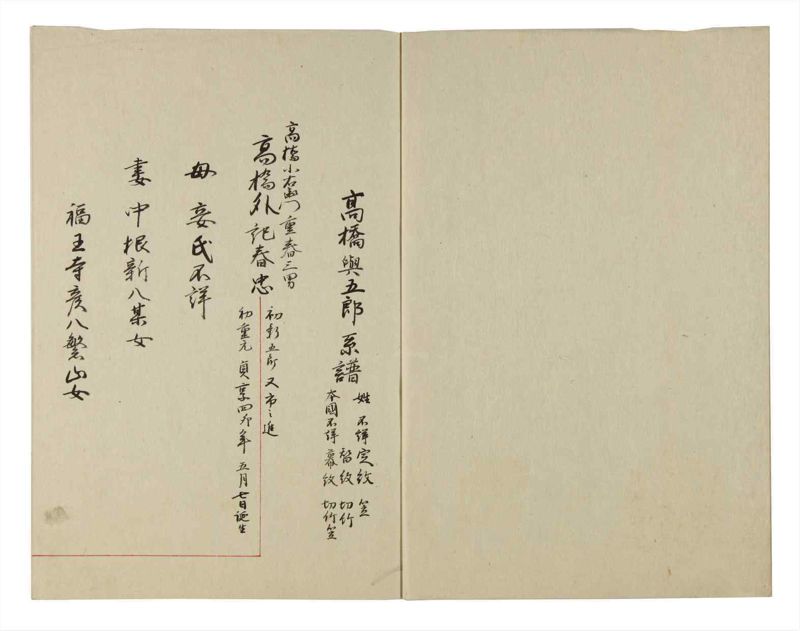 高橋與五郎系譜
姓 不詳 定紋 笠
替紋 切竹
本國不詳 幕紋 切竹笠
高橋小右衛門重春三男
高橋外記春忠
初新五郎 又市之進
初重元 貞享四卯年 五月七日誕生
母 妾氏不詳
妻 中根新八某女
福王寺彦八繁山女